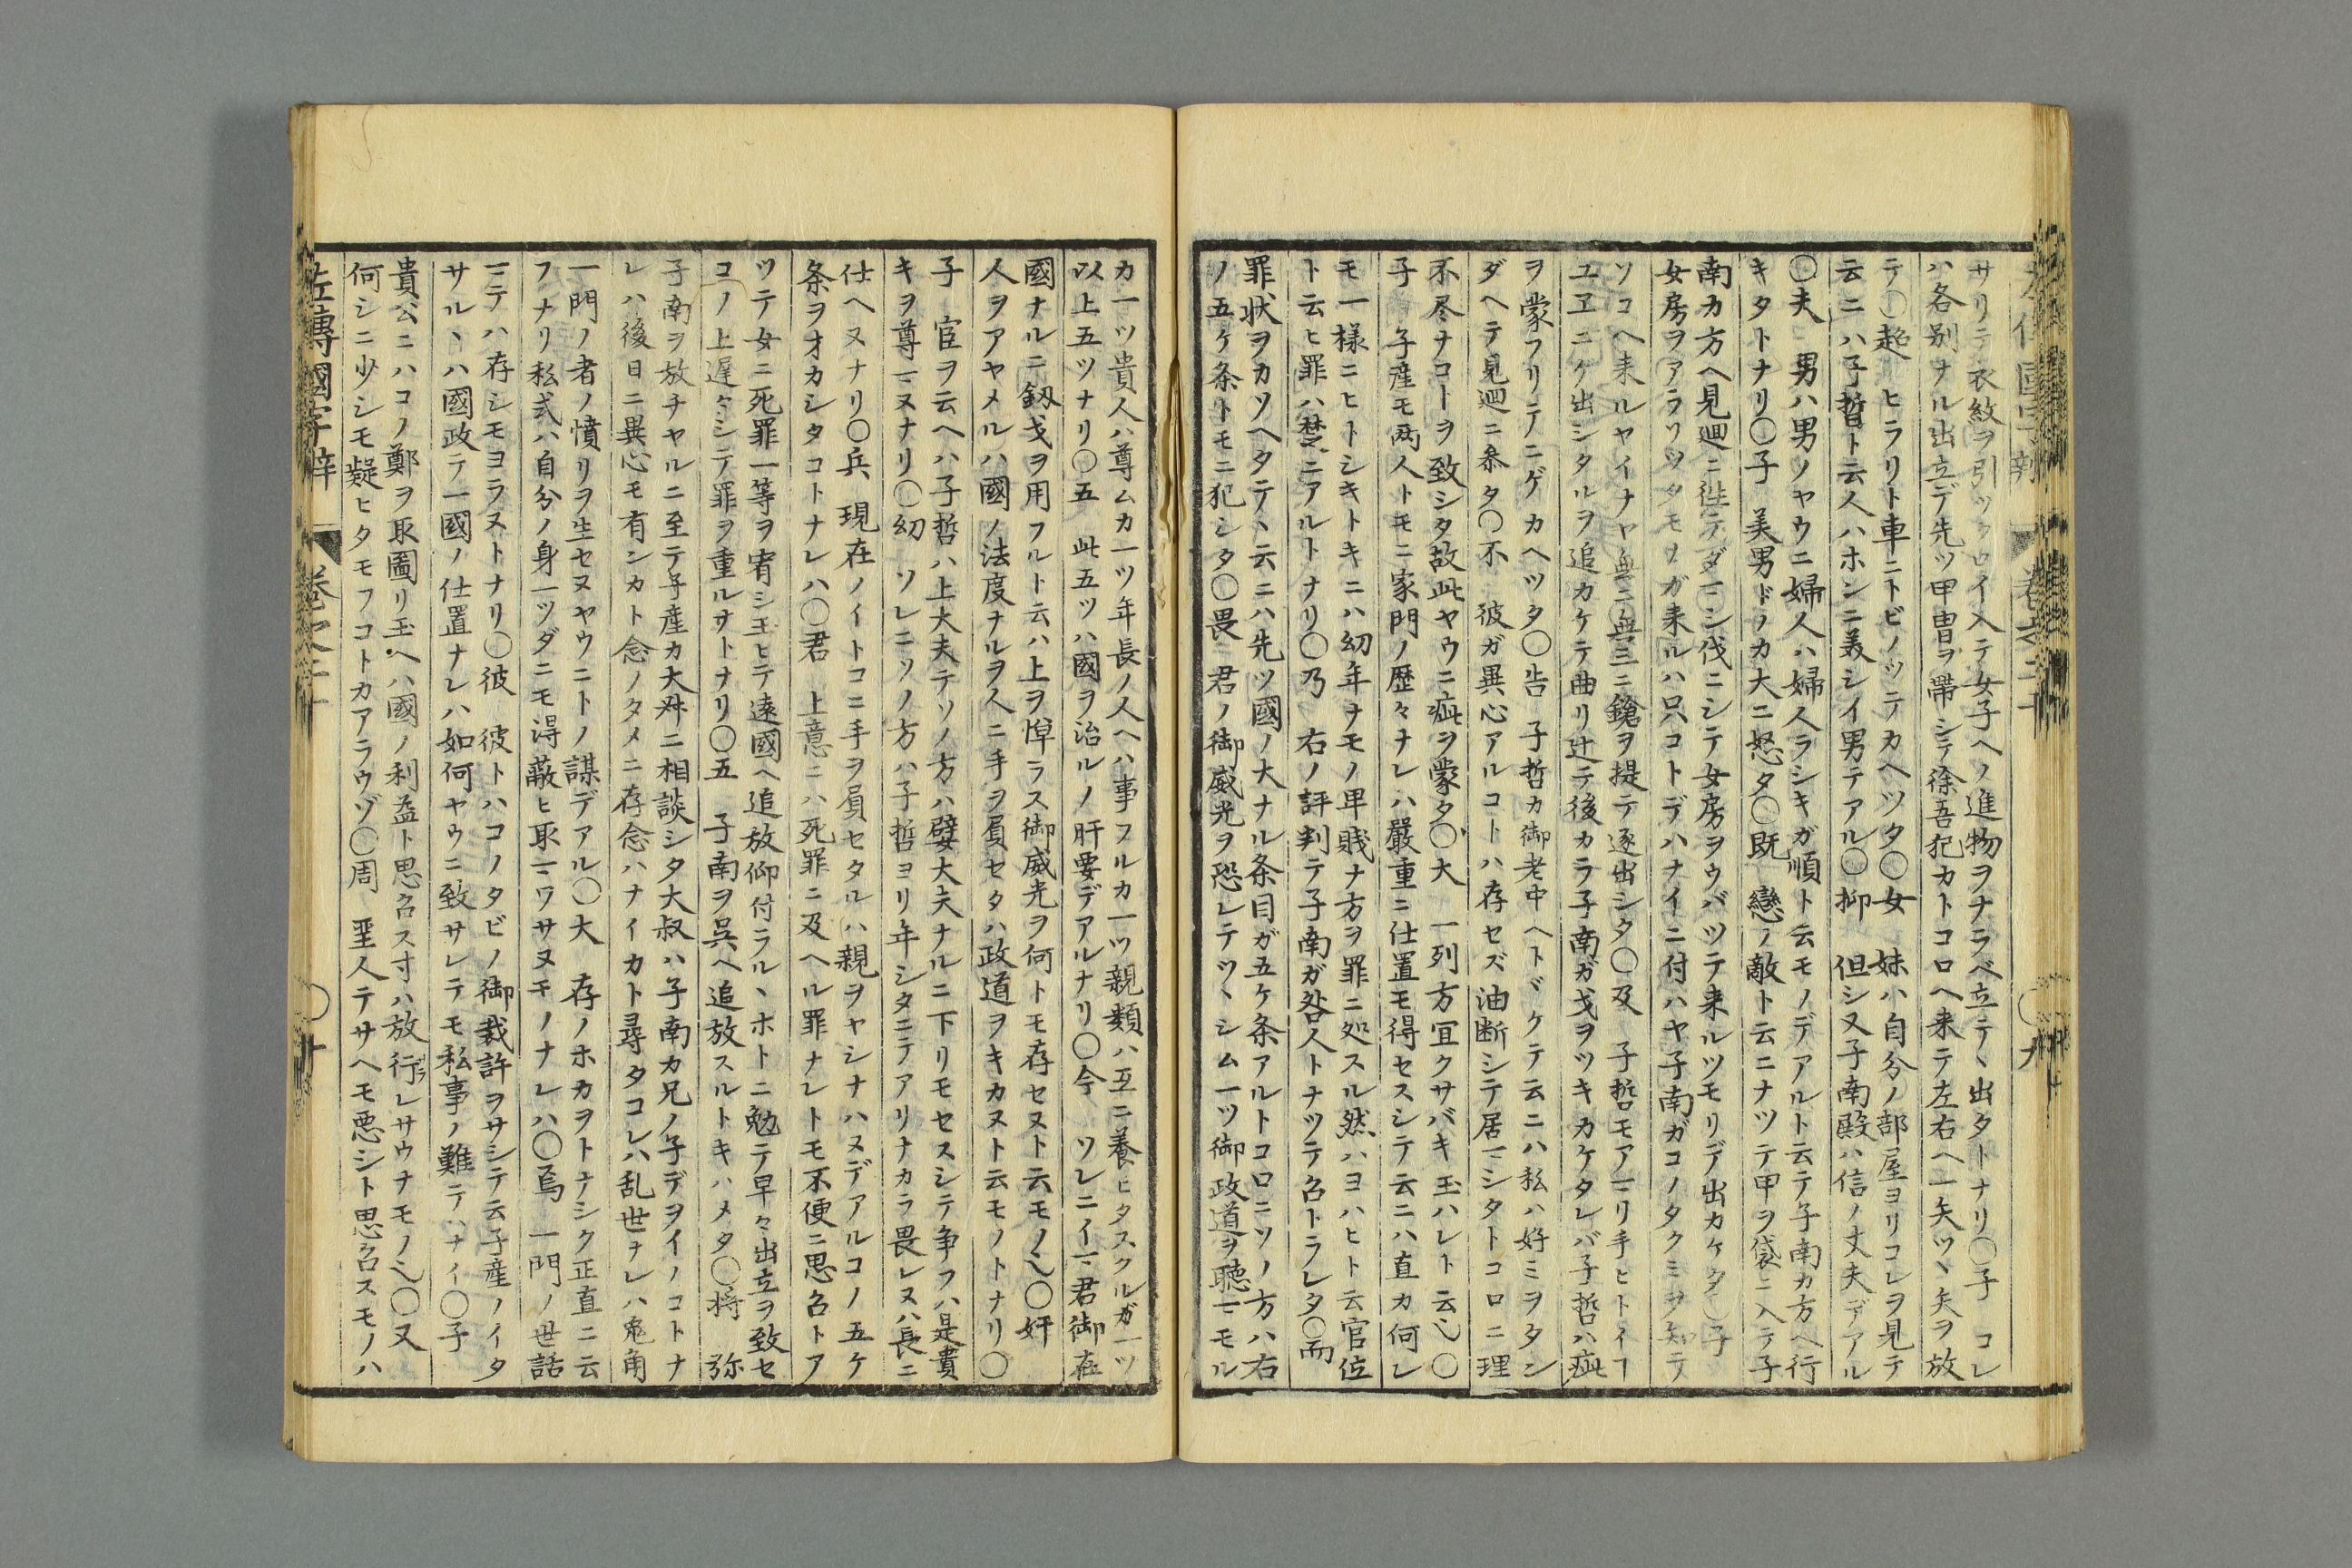 サリニテ衣紋ヲ引ツクロイ入テ女子ヘノ進物ヲナラベ立テヽ出タトナリ〇子 コレ
ハ各別ナル出立デ先ツ甲冑ヲ帶シテ徐吾犯カトコロヘ来テ左右ヘ一矢ツヽ矢ヲ放
テ〇超 ヒラリト車ニトビノツテカヘツタ〇女 妹ハ自分ノ部屋ヨリコレヲ見テ
云ニハ子晢ト云人ハホンニ美シイ男テアル〇抑 但シ又子南殿ハ信ノ丈夫デアル
〇夫 男ハ男ソヤウニ婦人ハ婦人ラシキガ順ト云モノデアルト云テ子南カ方ヘ行
キタトナリ〇子 美男ドノカ大ニ怒タ〇既 戀ノ敵ト云ニナツテ甲ヲ袋ニ入テ子
南カ方ヘ見廻ニ徃テダマシ伐ニシテ女房ヲウバツテ来ルツモリデ出カケタ〇子
女房ヲアラソツタモノガ来ルハ只コトデハナイニ付ハヤ子南ガコノタクミヲ知テ
ソコヘ来ルヤイナヤ無二無三ニ鎗ヲ提テ逐出シタ〇及 子晢モアマリ手ヒトイフ
ユヱニケ出シタルヲ追カケテ曲リ辻テ後カラ子南ガ戈ヲツキカケタレバ子晢ハ疵
ヲ蒙フリテニゲカヘツタ〇告 子晢カ御老中ヘトヾケテ云ニハ私ハ好ミヲタン
ダヘテ見廻ニ参タ〇不 彼ガ異心アルコトハ存セズ油断シテ居マシタトコロニ理
不尽ナコトヲ致シタ故此ヤウニ疵ヲ蒙タ〇大 一列方冝クサバキ玉ハレト云〻〇
子 子産モ两人トモニ家門ノ歴々ナレハ嚴重ニ仕置モ得セスシテ云ニハ直カ何レ
モ一様ニヒトシキトキニハ㓜年ナモノ卑賎ナ方ヲ罪ニ処スル然ハヨハヒト云官位
ト云ヒ罪ハ楚ニアルトナリ〇乃 右ノ評判テ子南ガ咎人トナツテ召トラレタ〇而
罪状ヲカソヘタテヽ云ニハ先ツ國ノ大ナル条目ガ五ケ条アルトコロニソノ方ハ右
ノ五ケ条トモニ犯シタ〇畏 君ノ御威光ヲ恐レテツヽシム一ツ御政道ヲ聴マモル
カ一ツ貴人ハ尊ムカ一ツ年長ノ人ヘハ事フルカ一ツ親類ハ互ニ養ヒタスクルガ一ツ
以上五ツナリ〇五 此五ツハ國ヲ治ルノ肝要デアルナリ〇今 ソレニイマ君御在
國ナルニ釼戈ヲ用フルト云ハ上ヲ憚ラス御威光ヲ何トモ存セヌト云モノ〻〇奸
人ヲアヤメルハ國ノ法度ナルヲ人ニ手ヲ屓セタハ政道ヲキカヌト云モノトナリ〇
子 官ヲ云ヘハ子晢ハ上大夫テソノ方ハ嬖大夫ナルニ下リモセスシテ争フハ是貴
キヲ尊マヌナリ〇㓜 ソレニソノ方ハ子晢ヨリ年シタニテアリナカラ畏レヌハ長ニ
仕ヘヌナリ〇兵 現在ノイトコニ手ヲ屓セタルハ親ヲヤシナハヌデアルコノ五ケ
条ヲオカシタコトナレハ〇君 上意ニハ死罪ニ及ヘル罪ナレトモ不便ニ思召トア
ツテ女ニ死罪一等ヲ宥シ玉ヒテ遠國ヘ追放仰付ラルヽホトニ勉テ早々出立ヲ致セ
コノ上遅々シテ罪ヲ重ルナトナリ〇五 子南ヲ呉ヘ追放スルトキハメタ〇将 弥
子南ヲ放チヤルニ至テ子産カ大叔ニ相談シタ大叔ハ子南カ兄ノ子デヲイノコトナ
レハ後日ニ異心モ有ンカト念ノタメニ存念ハナイカト尋タコレハ乱世ナレハ兎角
一門ノ者ノ憤リヲ生セヌヤウニトノ謀デアル〇大 存ノホカヲトナシク正直ニ云
フナリ私式ハ自分ノ身一ツダニモ得蔽ヒ取マワサヌモノナレハ〇焉 一門ノ世話
マテハ存シモヨラヌトナリ〇彼 彼トハコノタビノ御裁許ヲサシテ云子産ノイタ
サルヽハ國政テ一國ノ仕置ナレハ如何ヤウニ致サレテモ私事ノ難テハナイ〇子
貴公ニハコノ鄭ヲ取圖リ玉ヘハ國ノ利益ト思召ス寸ハ放行ヲレサウナモノ〻〇又
何シニ少シモ疑ヒタモフコトカアラウゾ〇周 聖人テサヘモ悪シト思召スモノハ
左傳國字辯 卷之二十 〇十